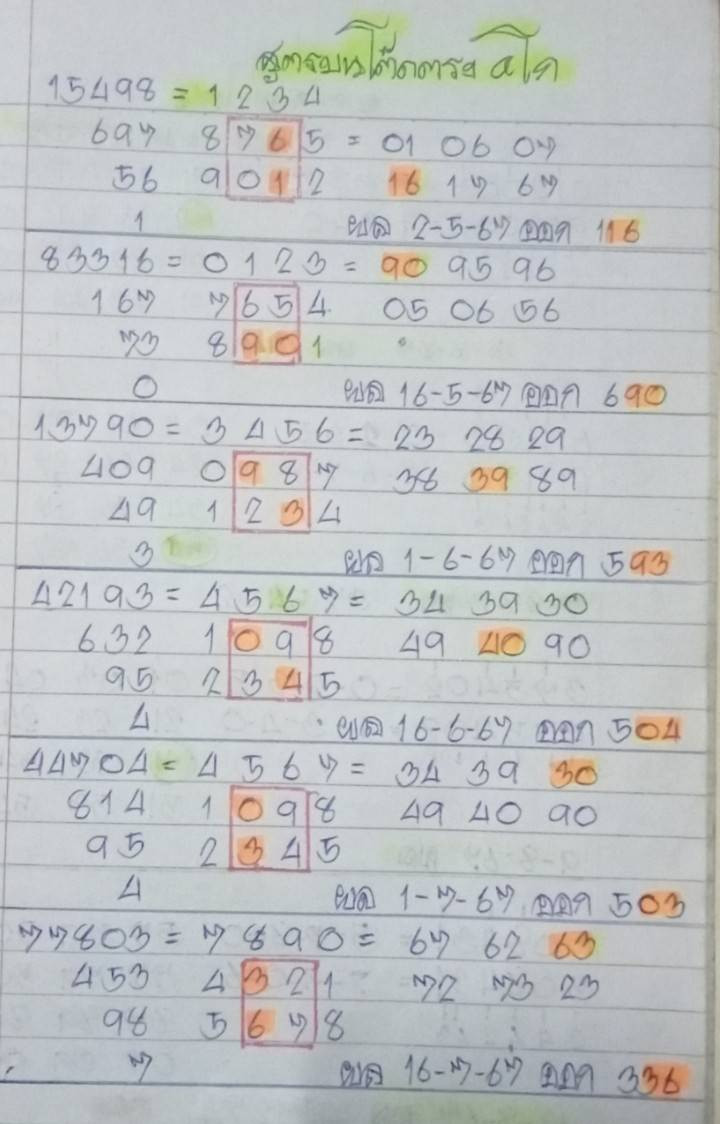 สูตรบนโต๊ดตรง สไก
15498 = 1 2 3 4
697 8 7 6 5 = 01 06 07
56 9 0 1 2 16 17 67
1 ผล 2-5-67 ออก 116
83316 = 0 1 2 3 = 90 95 96
167 7 6 5 4 05 06 56
73 8 9 0 1
0 ผล 16-5-67 ออก 690
13790 = 3 4 5 6 = 23 28 29
409 0 9 8 7 38 39 89
49 1 2 3 4
3 ผล 1-6-67 ออก 593
42193 = 4 5 6 7 = 34 39 30
632 1 0 9 8 49 40 90
95 2 3 4 5
4 ผล 16-6-67 ออก 504
44704 = 4 5 6 7 = 34 39 30
814 1 0 9 8 49 40 90
95 2 3 4 5
4 ผล 1-7-67 ออก 503
77803 = 7 8 9 0 = 67 62 63
453 4 3 2 1 72 73 23
98 5 6 7 8
7 ผล 16-7-67 ออก 336